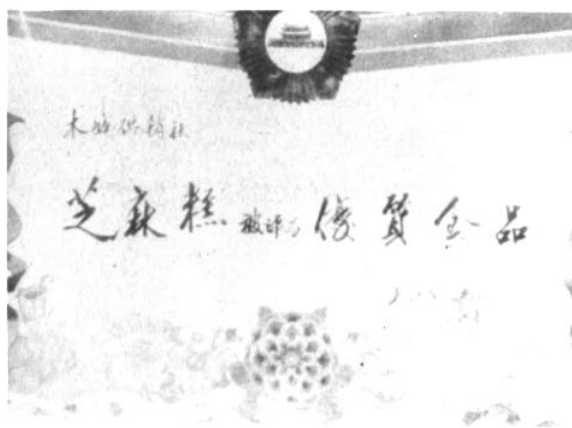 木城供销社
芝麻糕被评为優質食品